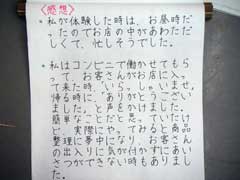 〈感想〉
・私が体験した時は、お昼時だ
ったのでお店の中があわただ
しくて、忙しそうでした。
・私はコンビニで働かせてもら
って、お客さんがお店に入っ
て来た時、いらっしゃいませ、
帰る時に、ありがとうござい
ました。と声をかけました。
簡単なことだと思っていたけ
ど、実際にやっておると商品
整理に夢中になり、お客さん
の出入りに気が付かずにあい
さつができない時もありまし
た。